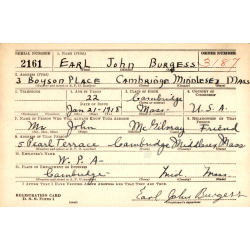 SERIAL NUMBER 1. NAME (PRINT) ORDER NUMBER
2161 EARL JOHN BURGESS 3187
2. ADDRESS (PRINT)
3 BOYSON PLACE CAMBRIDGE MIDDLESEX MASS
3. TELEPHONE 4. AGE IN YEARS 5. PLACE OF BIRTH 6. COUNTRY OF CITIZENSHIP
22 Cambridge
DATE OF BIRTH
Jan 21-1918 Mass. U.S.A.
7. NAME OF PERSON WHO WILL ALWAYS KNOW YOUR ADDRESS 8. RELATIONSHIP OF THAT PERSON
Mr John McGilvray Friend
9. ADDRESS OF THAT PERSON
5 Pearl Terrace Cambridge Middlesex Mass
10. EMPLOYER'S NAME
W.P.A-
11. PLACE OF EMPLOYMENT OR BUSINESS
Cambridge- Mid Mass.
I AFFIRM THAT I HAVE VERIFIED ABOVE ANSWERS AND THAT THEY ARE TRUE.
REGISTRATION CARD
D. S. S. FORM 1 Earl John Burgess